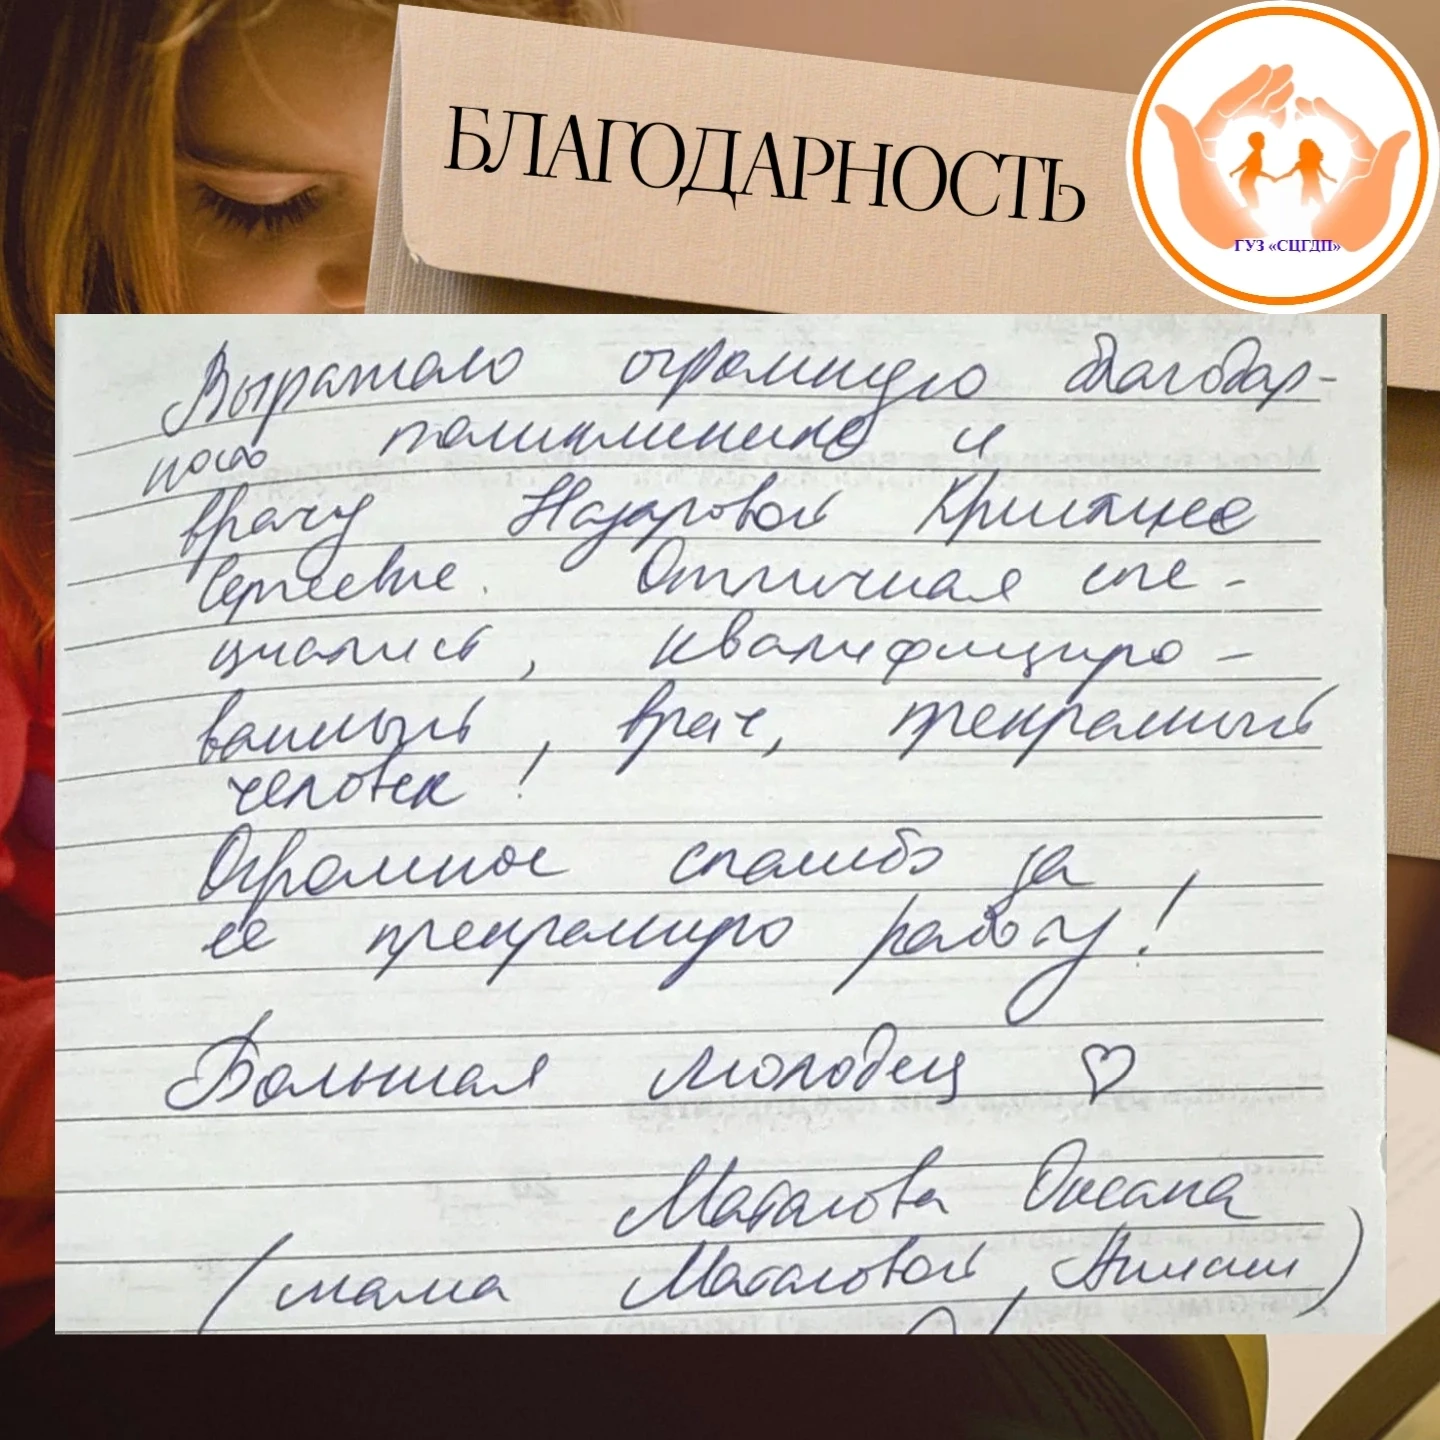 БЛАГОДАРНОСТЬ
ГУЗ «СЦГДП»
Выражаю огромную благодар-
ность поликлинике и
врачу Назаровой Кристине
Сергеевне. Отличная спе-
циалист, квалифициро-
ванный, врач, прекрасный
человек!
Огромное спасибо за
ее прекрасную работу!
Большая молодец ♡
Маталова Оксана
(мама Маталовой